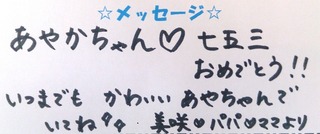 ☆メッセージ☆
あやかちゃん♡ 七五三
おめでとう!!
いつまでも かわいい あやちゃんで
いてね 美咲♡パパ♡ママより